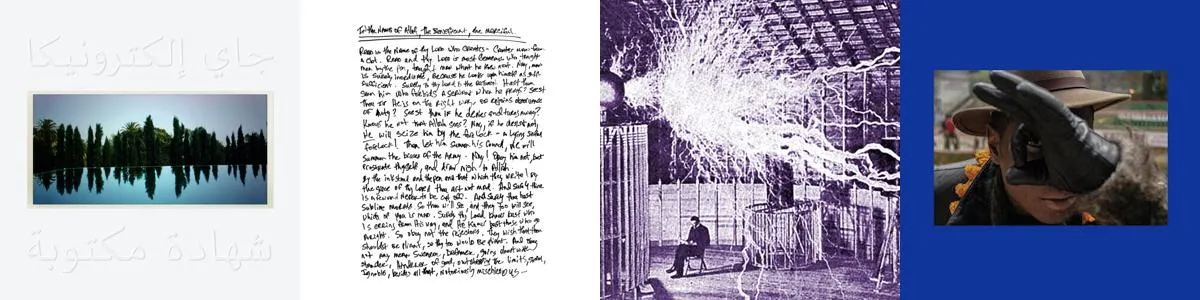 جاي إلكترونيكا
شهادة مكتوبة
In the Name of Allah, the Beneficent, the Merciful.
Read in the name of thy Lord who creates - Creates man from
a clot. Read and thy Lord is most Generous, who taught
man by the pen, taught man what he knew not. Nay, man
is surely inordinate, Because he looks upon himself as self-
sufficient. Surely to thy Lord is the return. Hast thou
seen him who forbids a servant when he prays? Seest
thou if He is on the Right way, or enjoins observance
of duty? Seest thou if he denies and turns away?
Knows he not that Allah sees? Nay, if he desist not,
We will seize him by the forelock - a lying sinful
forelock! Then let him summon his council, We will
summon the braves of the Army. Nay! Obey him not, but
prostrate thyself, and draw nigh to Allah.
By the inkstand and the pen and that which they write! By
the grace of thy Lord thou art not mad. And surely thine
is a reward never to be cut off. And surely thou hast
sublime morals. So thou wilt see, and they too will see,
which of you is mad. Surely thy Lord knows best who
is erring from His way, and He knows best those who go
aright. So obey not the rejectors. They wish that thou
shouldst be pliant, so they too would be pliant. And obey
not any mean swearer, Defamer, going about with
slander, Hinderer of good, outstepping the limits, sinful,
Ignoble, besides all that, notoriously mischievous -